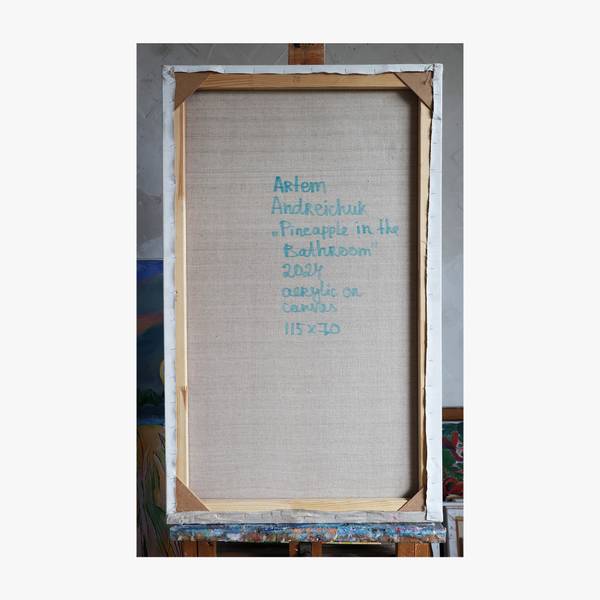 Artem
Andreichuk
„Pineapple in the
Bathroom"
2024
acrylic on
canvas
115x70